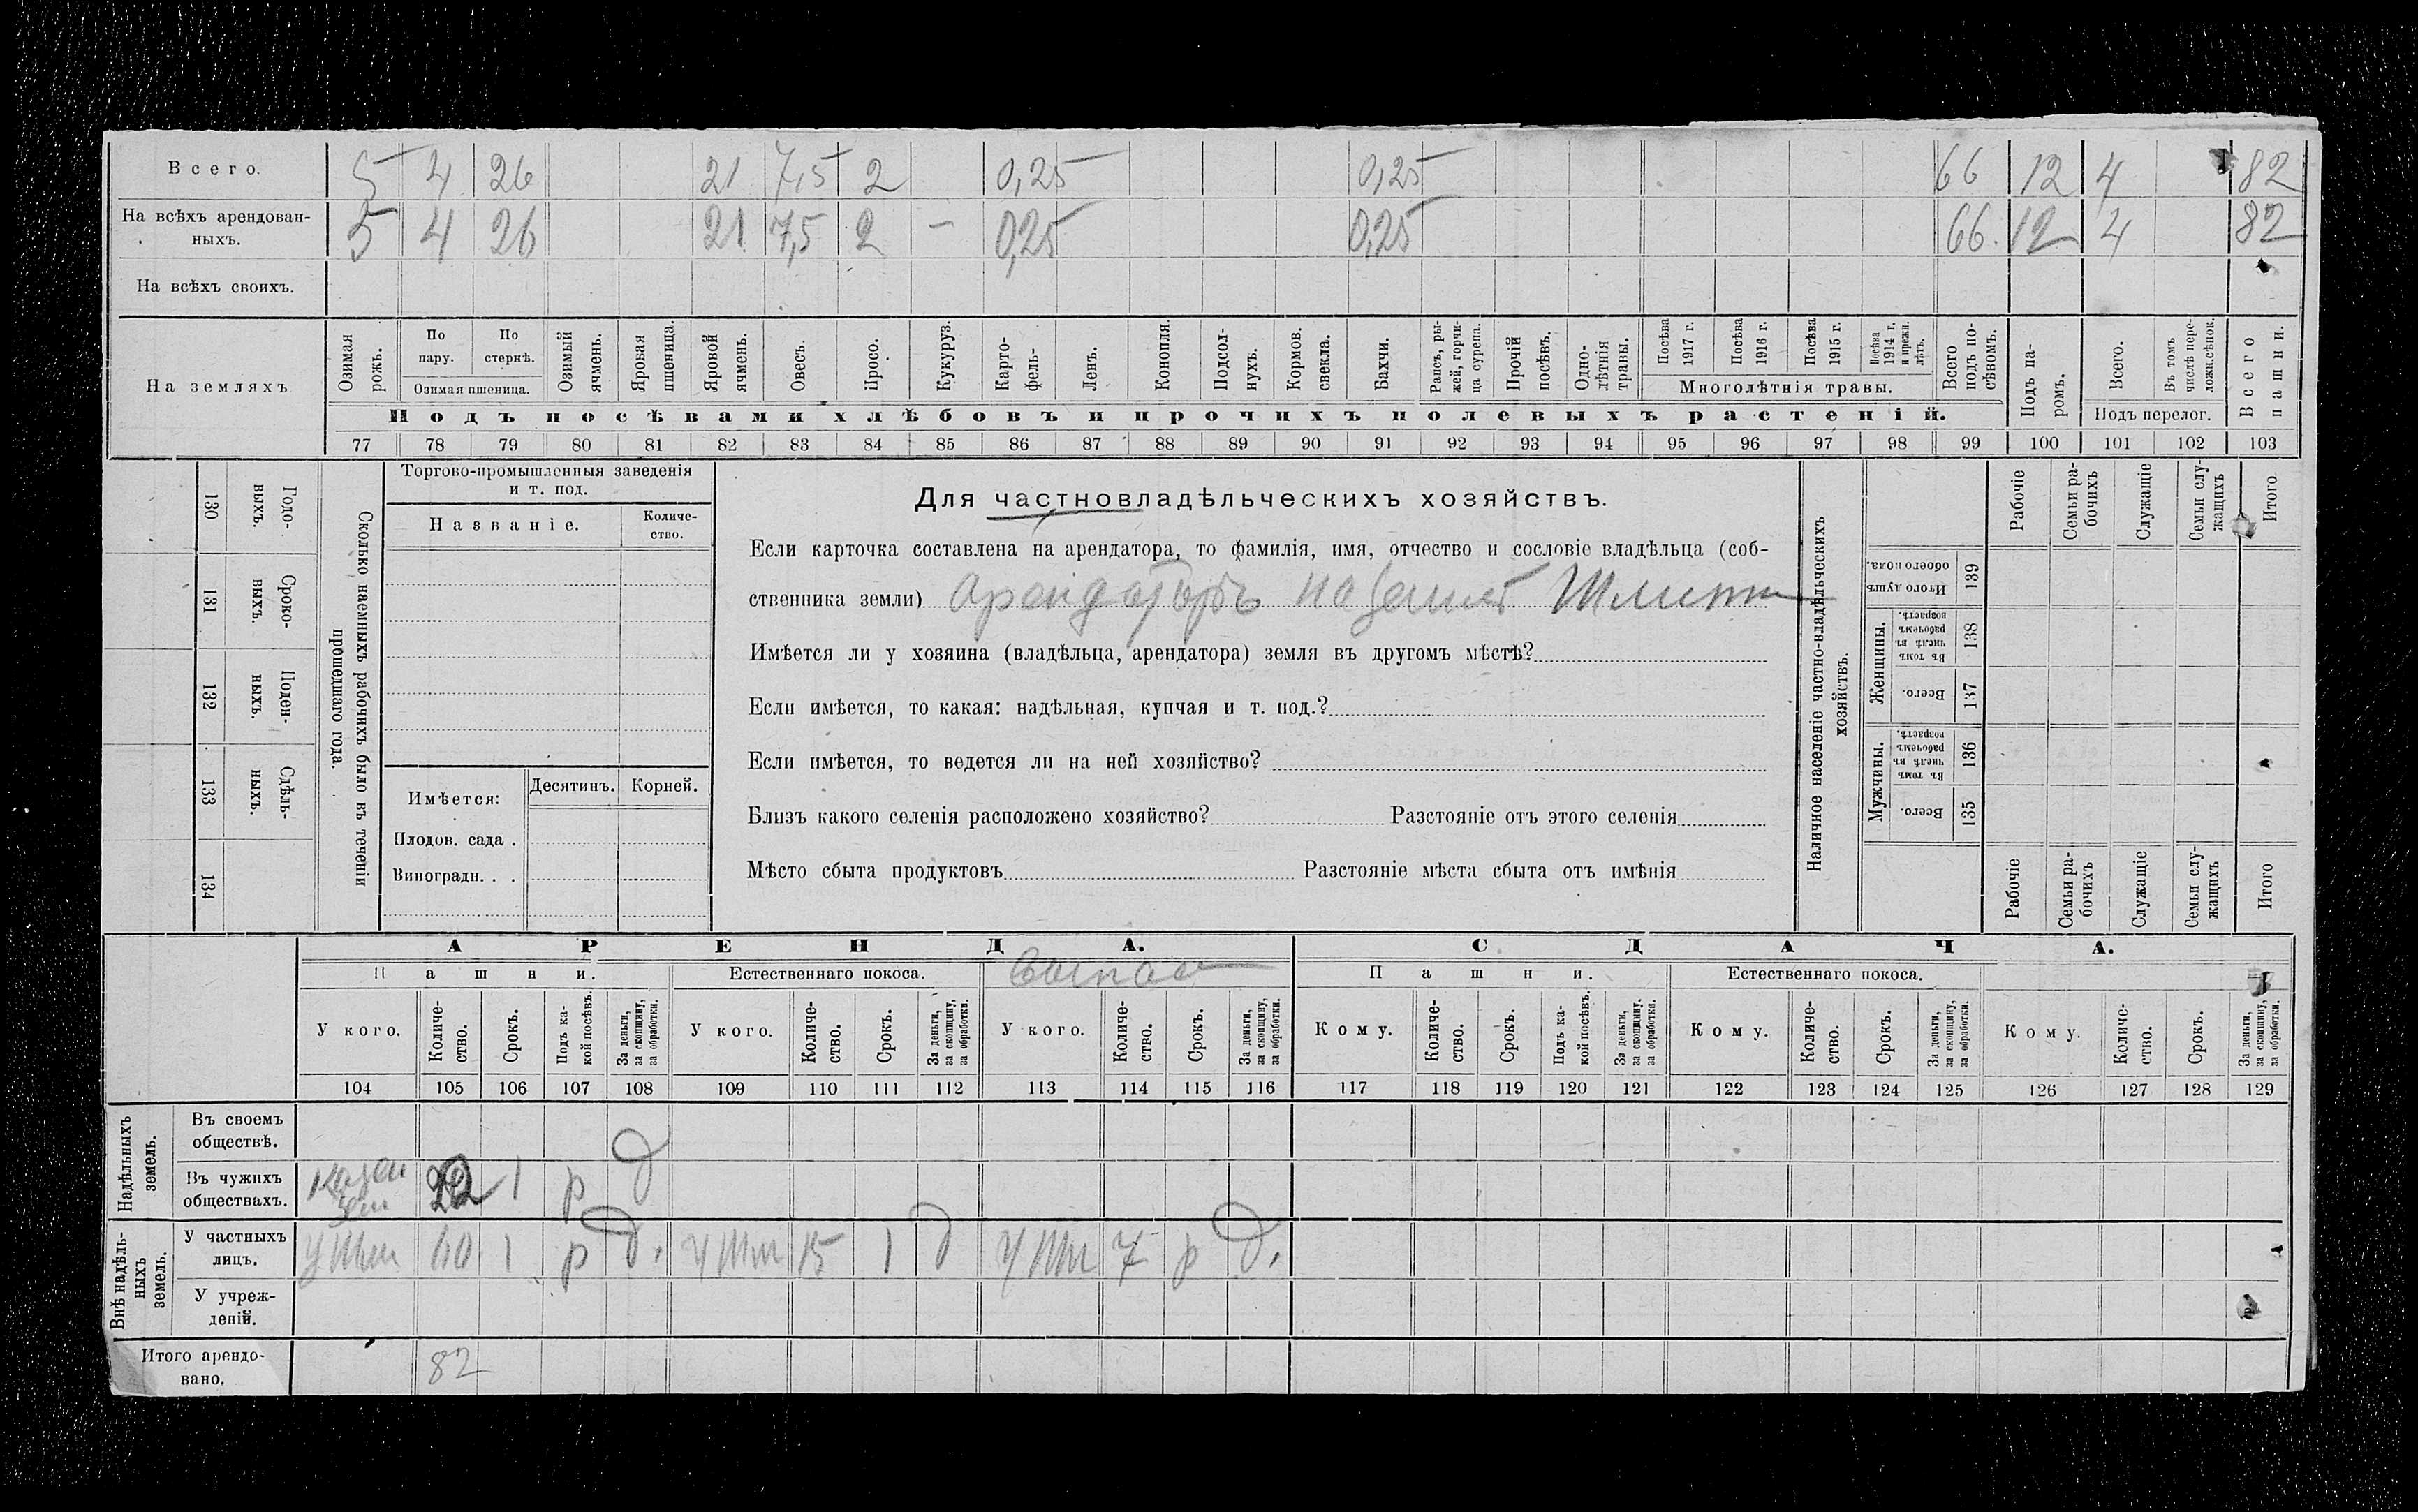 Всего. 5 4 26 21 7,5 2 0,25 0,25 66 12 4 82
На всѣхъ арендован-
ныхъ. 5 4 26 21 7,5 2 – 0,25 0,25 66. 12 4 82
На всѣхъ своихъ.
На земляхъ
Озимая рожь.
По пару.
По стернѣ.
Озимая пшеница.
Озимый ячмень.
Яровая пшеница.
Яровой ячмень.
Овесъ.
Просо.
Кукуруз.
Карто-
фель-
Ленъ.
Конопля.
Подсол-
нухъ.
Кормов. свекла.
Бахчи.
Рапсъ, ры-
жей, горчи-
ца сурепа.
Прочій посѣвъ.
Одно-
лѣтнія травы.
Посѣва 1917 г.
Посѣва 1916 г.
Посѣва 1915 г.
Посѣва 1914 г. и прежн. лѣтъ.
Многолѣтнія травы.
Всего подъ по-
сѣвомъ.
Подъ па-
ромъ.
Всего.
Въ томъ числѣ пере-
ложн.сѣнок.
Подъ перелог.
Всего пашни.
Подъ посѣвами хлѣбовъ и прочихъ полевыхъ растеній.
77 78 79 80 81 82 83 84 85 86 87 88 89 90 91 92 93 94 95 96 97 98 99 100 101 102 103
Сколько наемныхъ рабочихъ было въ теченіи
прошедшаго года.
Годо-
выхъ. 130
Сроко-
выхъ. 131
Поден-
ныхъ. 132
Сдѣль-
ныхъ. 133
134
Торгово-промышленныя заведенія
и т. под.
Названіе.
Количе-
ство.
Имѣется:
Десятинъ. Корней.
Плодов. сада .
Виноградн. . .
Для частновладѣльческихъ хозяйствъ.
Если карточка составлена на арендатора, то фамилія, имя, отчество и сословіе владѣльца (соб-
ственника земли) Арендаторъ
Имѣется ли у хозяина (владѣльца, арендатора) земля въ другомъ мѣстѣ?
Если имѣется, то какая: надѣльная, купчая и т. под.?
Если имѣется, то ведется ли на ней хозяйство?
Близъ какого селенія расположено хозяйство? Разстояніе отъ этого селенія
Мѣсто сбыта продуктовъ Разстояніе мѣста сбыта отъ имѣнія
Наличное населеніе частно-владѣльческихъ
хозяйствъ.
Рабочіе
Семьи ра-
бочихъ
Служащіе
Семьи слу-
жащихъ
Итого.
Итого душъ обоего пола. 139
Женщины.
Въ томъ числѣ въ рабочемъ возрастѣ. 138
Всего. 137
Мужчины.
Въ томъ числѣ въ рабочемъ возрастѣ. 136
Всего. 135
Рабочіе
Семьи ра-
бочихъ
Служащіе
Семьи слу-
жащихъ
Итого
АРЕНДА. СДАЧА.
Пашни. Естественнаго покоса. Пашни. Естественнаго покоса.
У кого. Количе-
ство. Срокъ. Подъ ка-
кой посѣвъ. За деньги, за скопщину, за обработки.
У кого. Количе-
ство. Срокъ. За деньги, за скопщину, за обработки.
У кого. Количе-
ство. Срокъ. За деньги, за скопщину, за обработки.
Кому. Количе-
ство. Срокъ. Подъ ка-
кой посѣвъ. За деньги, за скопщину, за обработки.
Кому. Количе-
ство. Срокъ. За деньги, за скопщину, за обработки.
Кому. Количе-
ство. Срокъ. За деньги, за скопщину, за обработки.
104 105 106 107 108 109 110 111 112 113 114 115 116 117 118 119 120 121 122 123 124 125 126 127 128 129
Надѣльныхъ
земель.
Въ своемъ
обществѣ.
Въ чужихъ
обществахъ. Казен зем 22 1 р д
Внѣ надѣль-
ныхъ
земель.
У частныхъ
лицъ. 60 1 р д. 15 1 д 7 р д.
У учреж-
деній.
Итого арендо-
вано. 82